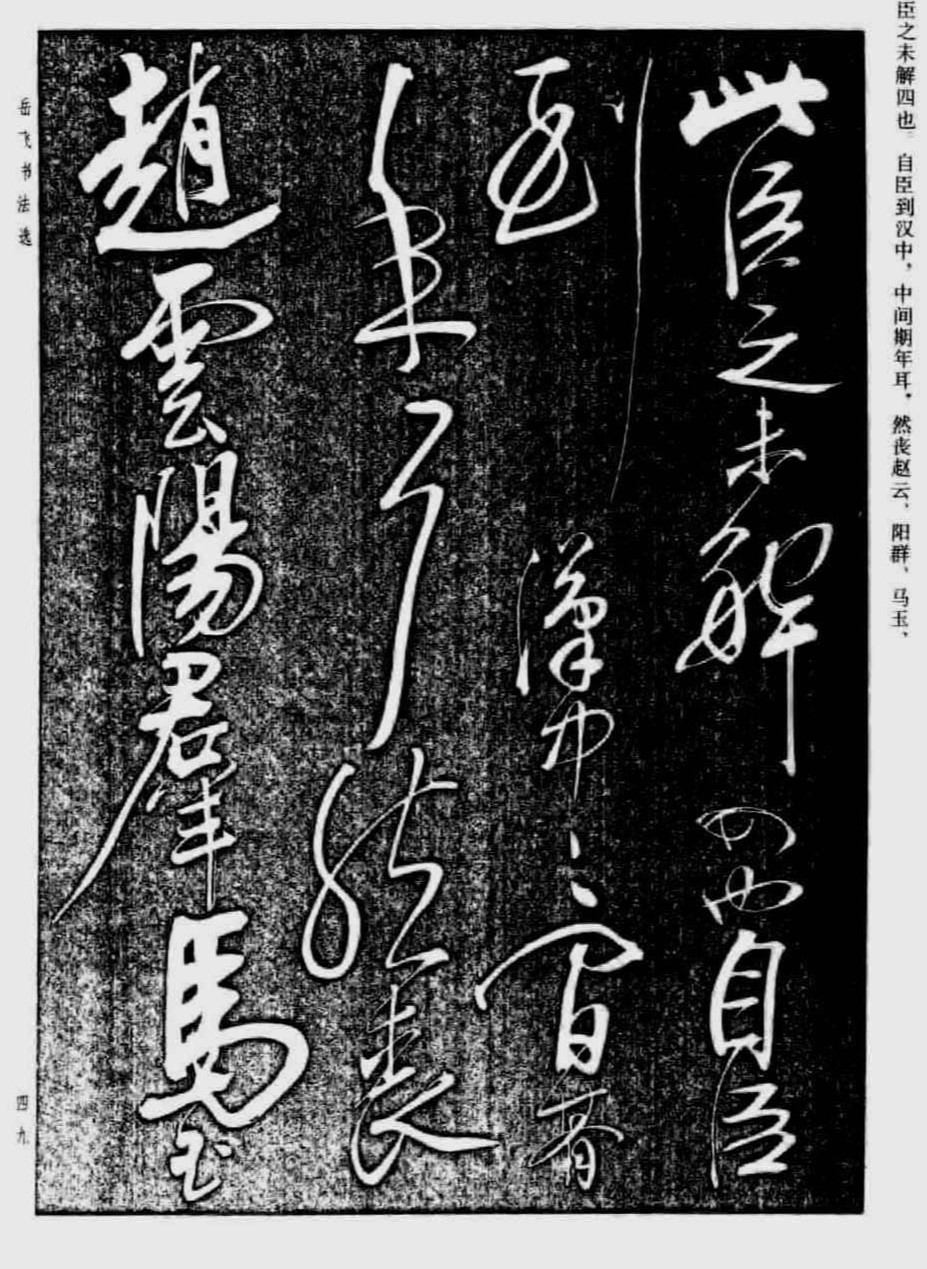 臣之未解四也。自臣到汉中，中间期年耳，然丧赵云、阳群、马玉、
此臣之未解四也自臣
到漢中〻間朞
年耳然喪
趙雲陽羣馬玉
岳飞书法选
四九